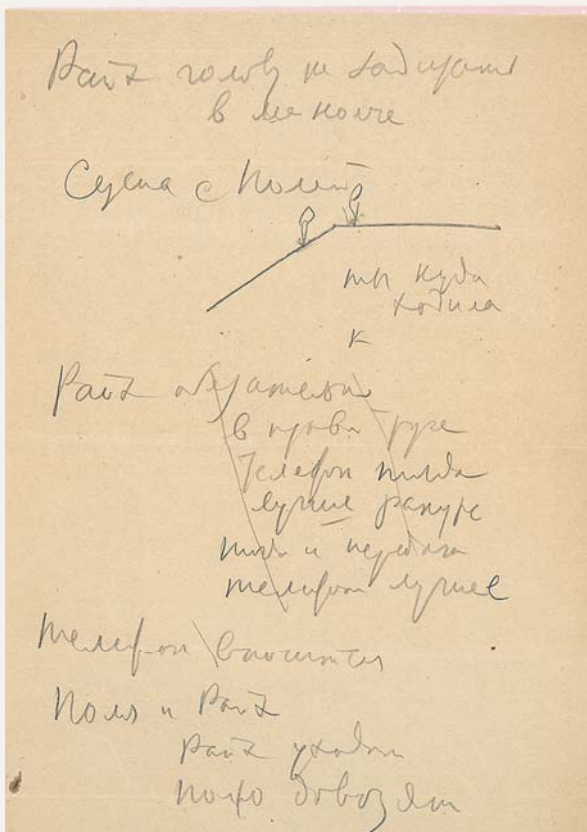 Райх голову не задирать
в
Сцена с Полей
ты куда
ходила
к
Райх обязательно
в правой руке
Телефон тогда
лучше ракурс
тогда и передача
телефона лучше
Телефон вносится
Поля и Райх
Райх уходит
плохо